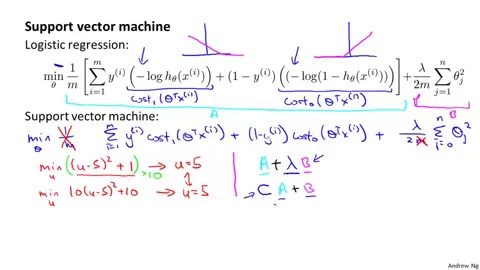 Support vector machine
Logistic regression:
min_θ 1/m [ Σ_{i=1}^{m} y^{(i)} (−log h_θ(x^{(i)})) + (1 − y^{(i)}) ((−log(1 − h_θ(x^{(i)})))) ] + λ/2m Σ_{j=1}^{n} θ_j^2
cost_1(θ^T x^{(i)}) cost_0(θ^T x^{(i)})
A B
Support vector machine:
min_θ 1/m Σ_{i=1}^{m} y^{(i)} cost_1(θ^T x^{(i)}) + (1-y^{(i)}) cost_0(θ^T x^{(i)}) + λ/2m Σ_{j=0}^{n} θ_j^2
min_u (u-5)^2 + 1 → u=5
×10
min_u 10(u-5)^2 + 10 → u=5
A + λ B ←
→ C A + B
Andrew Ng